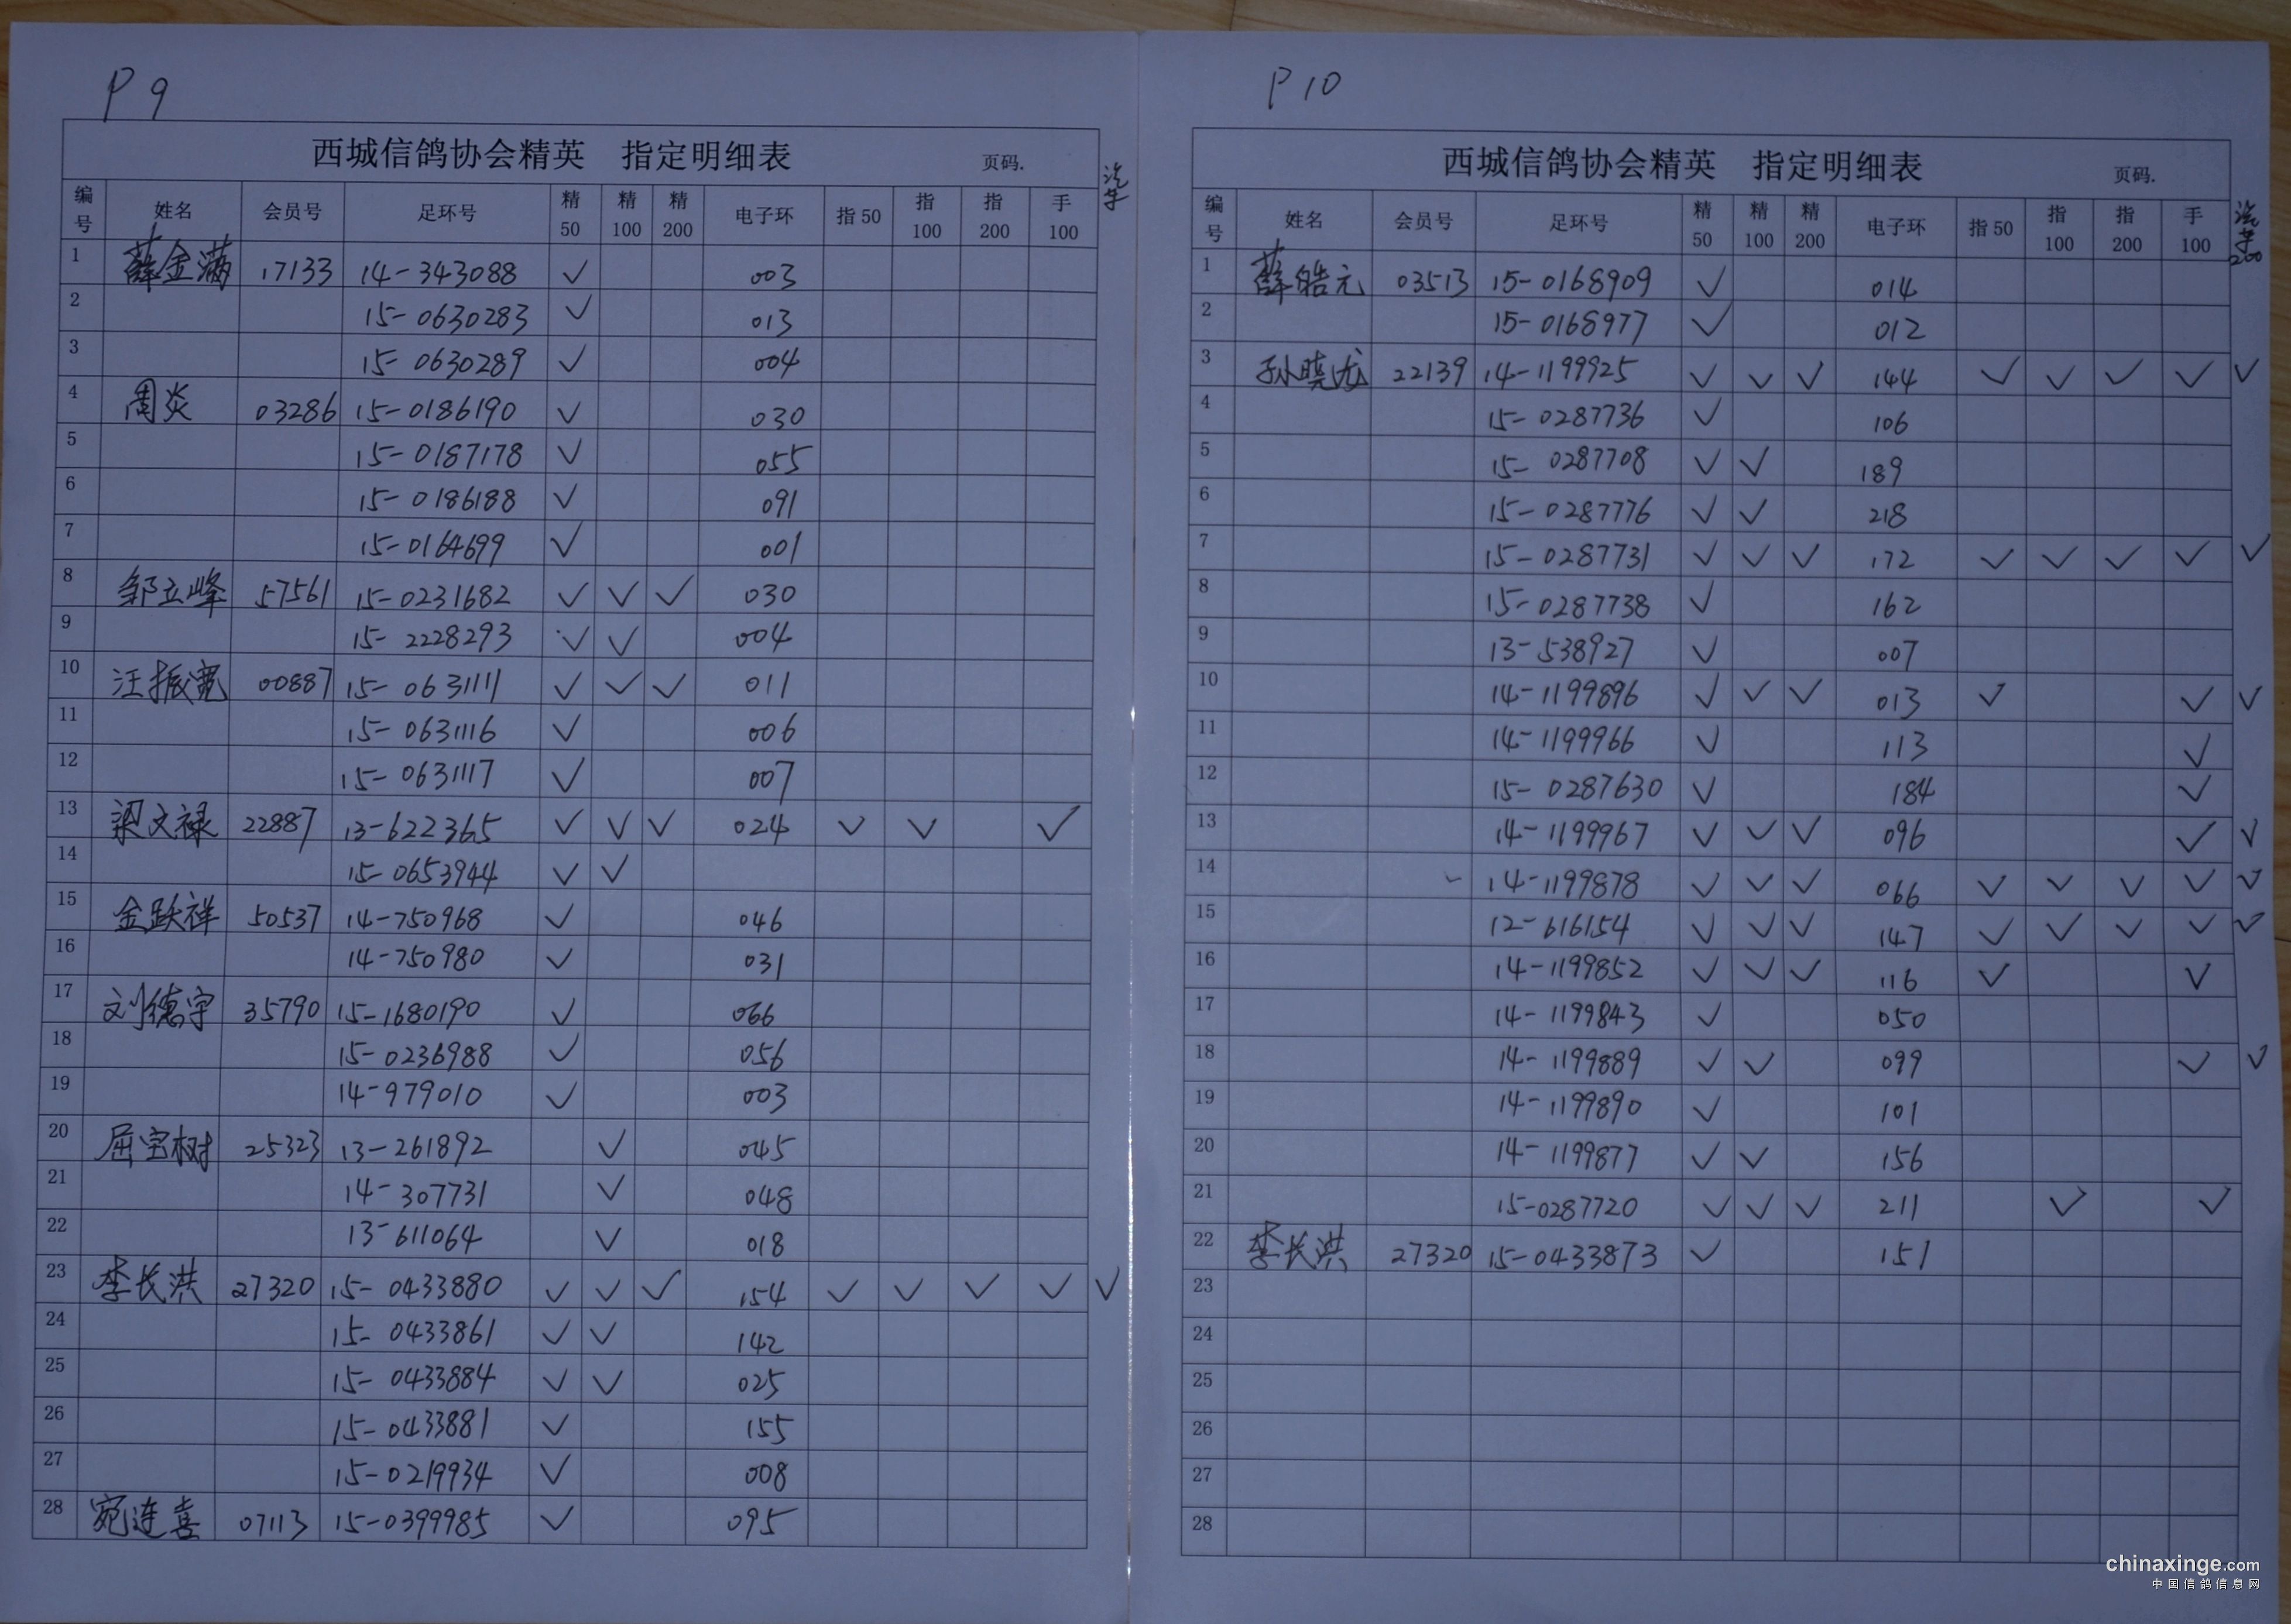 P 9
西城信鸽协会精英 指定明细表 页码.
编号 姓名 会员号 足环号 精50 精100 精200 电子环 指50 指100 指200 手100 汽车
1 薛金满 17133 14-343088 ✓ 003
2 15-0630283 ✓ 013
3 15-0630289 ✓ 004
4 周炎 03286 15-0186190 ✓ 030
5 15-0187178 ✓ 055
6 15-0186188 ✓ 091
7 15-0164699 ✓ 001
8 邹立峰 57561 15-0231682 ✓ ✓ ✓ 030
9 15-2228293 ✓ ✓ 004
10 汪振宽 00887 15-0631111 ✓ ✓ ✓ 011
11 15-0631116 ✓ 006
12 15-0631117 ✓ 007
13 梁文禄 22887 13-622365 ✓ ✓ ✓ 024 ✓ ✓ ✓
14 15-0653944 ✓ ✓
15 金跃祥 50537 14-750968 ✓ 046
16 14-750980 ✓ 031
17 刘德宇 35790 15-1680190 ✓ 066
18 15-0236988 ✓ 056
19 14-979010 ✓ 003
20 屈宝树 25323 13-261892 ✓ 045
21 14-307731 ✓ 048
22 13-611064 ✓ 018
23 李长洪 27320 15-0433880 ✓ ✓ ✓ 154 ✓ ✓ ✓ ✓ ✓
24 15-0433861 ✓ ✓ 142
25 15-0433884 ✓ ✓ 025
26 15-0433881 ✓ 155
27 15-0219934 ✓ 008
28 宛连喜 07113 15-0399985 ✓ 095
P 10
西城信鸽协会精英 指定明细表 页码.
编号 姓名 会员号 足环号 精50 精100 精200 电子环 指50 指100 指200 手100 汽车200
1 薛皓元 03513 15-0168909 ✓ 014
2 15-0168977 ✓ 012
3 孙晓龙 22139 14-1199925 ✓ ✓ ✓ 144 ✓ ✓ ✓ ✓ ✓
4 15-0287736 ✓ 106
5 15-0287708 ✓ ✓ 189
6 15-0287776 ✓ ✓ 218
7 15-0287731 ✓ ✓ ✓ 172 ✓ ✓ ✓ ✓ ✓
8 15-0287738 ✓ 162
9 13-538927 ✓ 007
10 14-1199896 ✓ ✓ ✓ 013 ✓ ✓ ✓
11 14-1199966 ✓ 113 ✓
12 15-0287630 ✓ 184 ✓
13 14-1199967 ✓ ✓ ✓ 096 ✓ ✓
14 14-1199878 ✓ ✓ ✓ 066 ✓ ✓ ✓ ✓ ✓
15 12-616154 ✓ ✓ ✓ 147 ✓ ✓ ✓ ✓ ✓
16 14-1199852 ✓ ✓ ✓ 116 ✓ ✓
17 14-1199843 ✓ 050
18 14-1199889 ✓ ✓ 099 ✓ ✓
19 14-1199890 ✓ 101
20 14-1199877 ✓ ✓ 156
21 15-0287720 ✓ ✓ ✓ 211 ✓ ✓
22 李长洪 27320 15-0433873 ✓ 151
23
24
25
26
27
28
chinaxinge.com
中国信鸽信息网